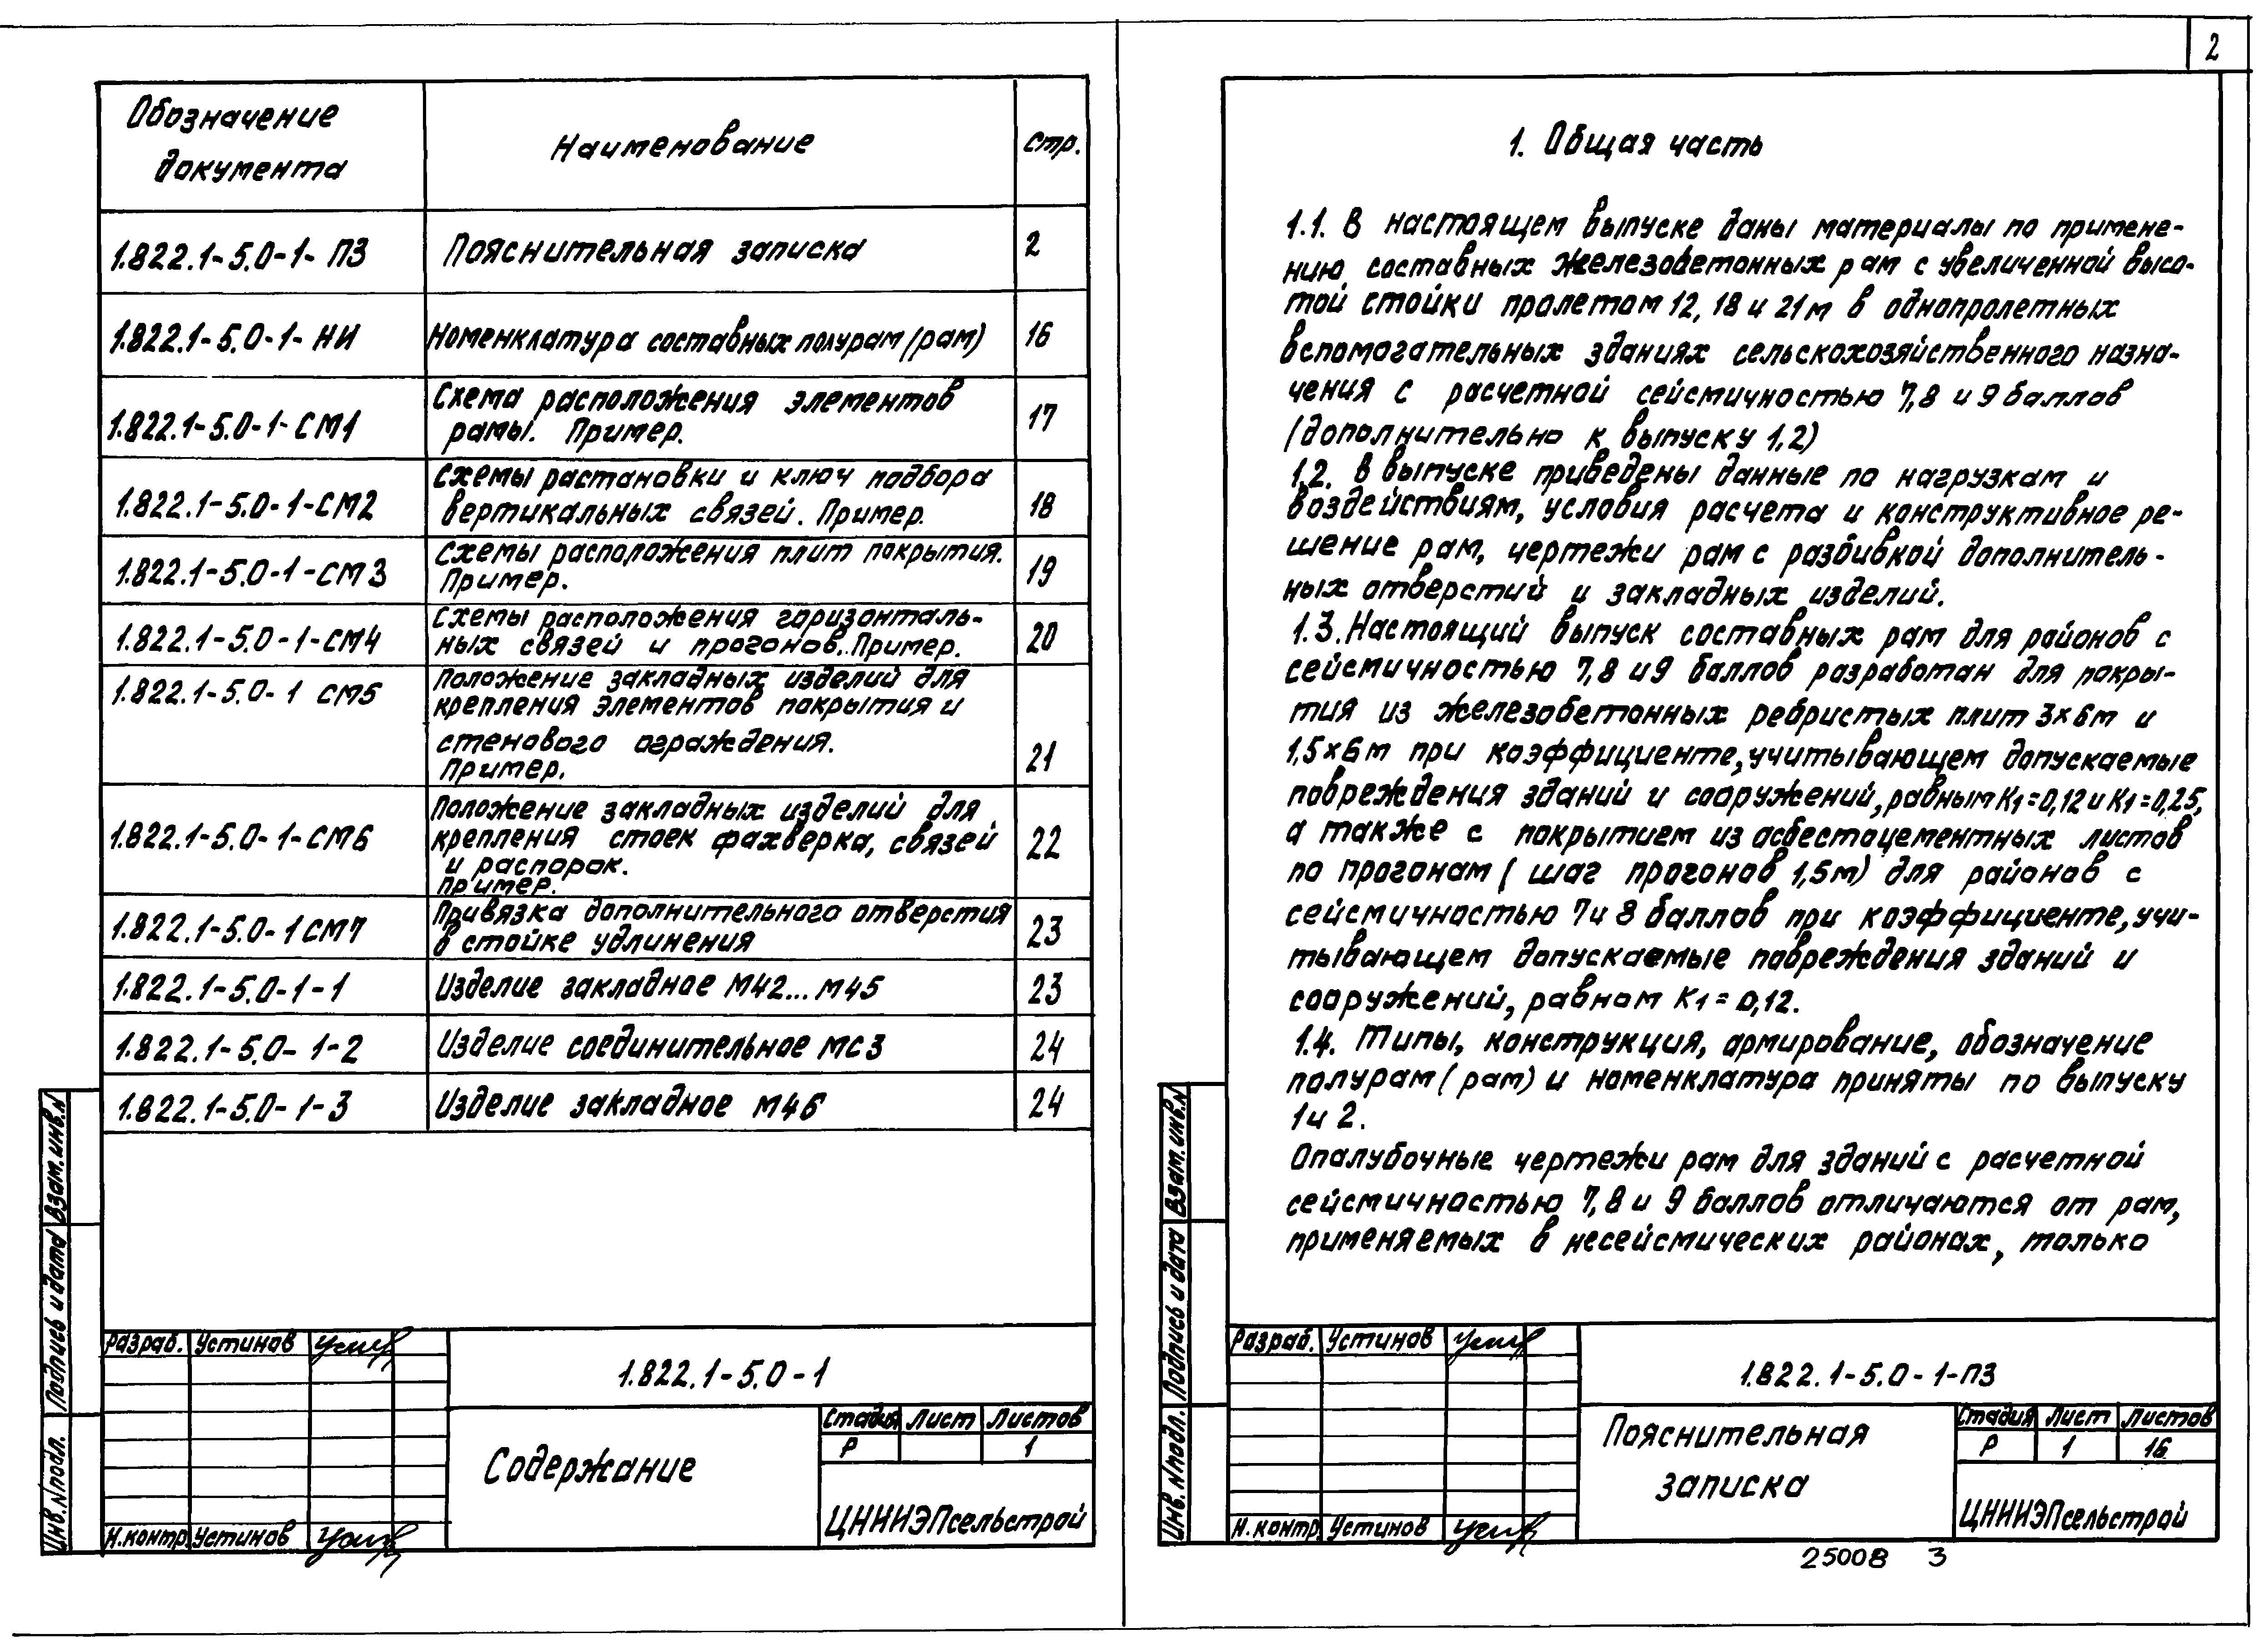 2
Обозначение
документа
Наименование
стр.
1.822.1-5.0-1- ПЗ
Пояснительная записка
2
1.822.1-5.0-1- НИ
Номенклатура составных полурам (рам)
16
1.822.1-5.0-1-СМ1
Схема расположения элементов
рамы. Пример.
17
1.822.1-5.0-1-СМ2
Схемы растановки и ключ подбора
вертикальных связей. Пример.
18
1.822.1-5.0-1-СМ3
Схемы расположения плит покрытия.
Пример.
19
1.822.1-5.0-1-СМ4
Схемы расположения горизонталь-
ных связей и прогонов. Пример.
20
1.822.1-5.0-1 СМ5
Положение закладных изделий для
крепления элементов покрытия и
стенового ограждения.
Пример.
21
1.822.1-5.0-1-СМ6
Положение закладных изделий для
крепления стоек фахверка, связей
и распорок.
Пример.
22
1.822.1-5.0-1СМ7
Привязка дополнительного отверстия
в стойке удлинения
23
1.822.1-5.0-1-1
Изделие закладное М42...М45
23
1.822.1-5.0-1-2
Изделие соединительное МС3
24
1.822.1-5.0-1-3
Изделие закладное М46
24
Взам.инв.N
Подпись и дата
Инв.Nподл.
Разраб. Устинов
Н.контр. Устинов
1.822.1-5.0-1
Содержание
Стадия Лист Листов
Р 1
ЦНИИЭПсельстрой
1. Общая часть
1.1. В настоящем выпуске даны материалы по примене-
нию составных железобетонных рам с увеличенной высо-
той стойки пролетом 12, 18 и 21м в однопролетных
вспомогательных зданиях сельскохозяйственного назна-
чения с расчетной сейсмичностью 7,8 и 9 баллов
(дополнительно к выпуску 1,2)
1.2. В выпуске приведены данные по нагрузкам и
воздействиям, условия расчета и конструктивное ре-
шение рам, чертежи рам с разбивкой дополнитель-
ных отверстий и закладных изделий.
1.3. Настоящий выпуск составных рам для районов с
сейсмичностью 7,8 и 9 баллов разработан для покры-
тия из железобетонных ребристых плит 3×6м и
1,5×6м при коэффициенте, учитывающем допускаемые
повреждения зданий и сооружений, равным К1=0,12 и К1=0,25,
а также с покрытием из асбестоцементных листов
по прогонам (шаг прогонов 1,5м) для районов с
сейсмичностью 7 и 8 баллов при коэффициенте, учи-
тывающем допускаемые повреждения зданий и
сооружений, равном К1 = 0,12.
1.4. Типы, конструкция, армирование, обозначение
полурам (рам) и номенклатура приняты по выпуску
1 и 2.
Опалубочные чертежи рам для зданий с расчетной
сейсмичностью 7,8 и 9 баллов отличаются от рам,
применяемых в несейсмических районах, только
Взам.инв.N
Подпись и дата
Инв.Nподл.
Разраб. Устинов
Н.контр. Устинов
1.822.1-5.0-1-ПЗ
Пояснительная
записка
Стадия Лист Листов
Р 1 16
ЦНИИЭПсельстрой
25008 3